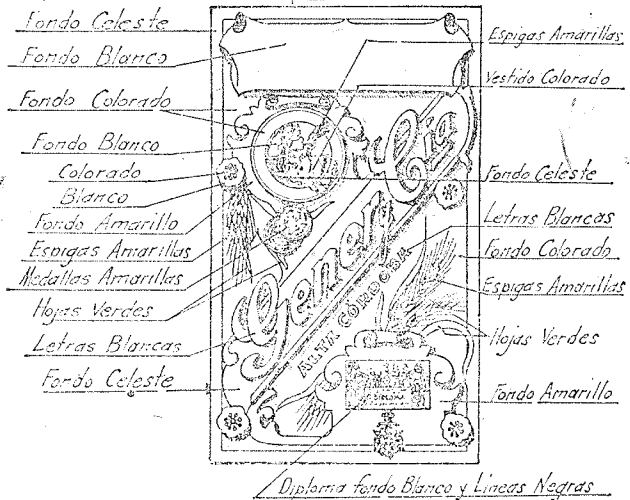 Fondo Celeste
Fondo Blanco
Fondo Colorado
Fondo Blanco
Colorado
Blanco
Fondo Amarillo
Espigas Amarillas
Medallas Amarillas
Hojas Verdes
Letras Blancas
Fondo Celeste
y Cía
ALTA CORDOBA
DIPLOMA
Espigas Amarillas
Vestido Colorado
Fondo Celeste
Letras Blancas
Fondo Colorado
Espigas Amarillas
Hojas Verdes
Fondo Amarillo
Diploma fondo Blanco y Líneas Negras